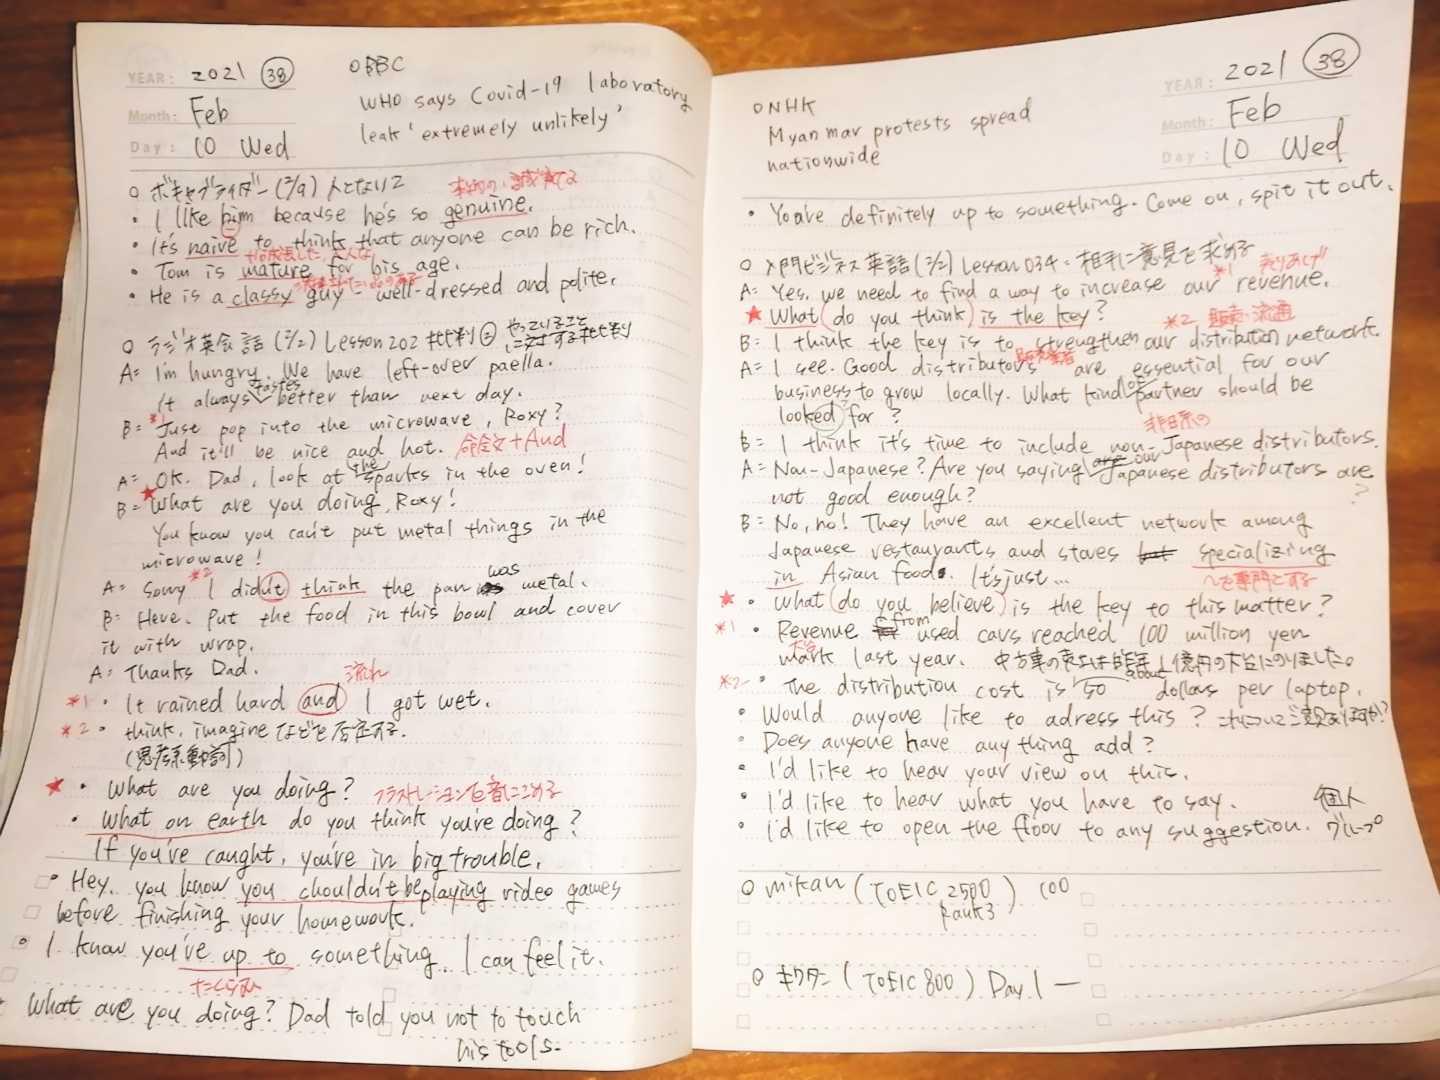 YEAR: 2021 38
Month: Feb
Day: 10 Wed
○BBC
WHO says Covid-19 laboratory
leak 'extremely unlikely'
○ ボキャブライダー (2/9) 人となり2
・I like him because he's so genuine.
・It's naive to think that anyone can be rich.
・Tom is mature for his age.
・He is a classy guy - well-dressed and polite.
○ ラジオ英会話 (2/2) Lesson 202 批判② やっていること
に対する批判
A= I'm hungry. We have left-over paella.
It always tastes better than next day.
B= *1 Just pop into the microwave, Roxy?
And it'll be nice and hot. 命令文+And
A= OK. Dad, look at the sparks in the oven!
B= ★What are you doing, Roxy!
You know you can't put metal things in the
microwave!
A= Sorry *2 I didn't think the pan was metal.
B= Here. Put the food in this bowl and cover
it with wrap.
A= Thanks Dad. 流れ
*1 ・It rained hard and I got wet.
*2 ・think, imagine などを否定する.
(思考系動詞)
★ ・What are you doing? フラストレーションを音にこめる
・What on earth do you think you're doing?
If you've caught, you're in big trouble.
・Hey, you know you shouldn't be playing video games
before finishing your homework.
・I know you've up to something. I can feel it.
たくらみ
・What are you doing? Dad told you not to touch
his tools.
YEAR: 2021 38
Month: Feb
Day: 10 Wed
○NHK
Myanmar protests spread
nationwide
・You're definitely up to something. Come on, spit it out.
○ 入門ビジネス英語 (2/2) Lesson 034・相手に意見を求める
*1 売りあげ
A= Yes. we need to find a way to increase our revenue.
★ What (do you think) is the key?
*2 販売・流通
B= I think the key is to strengthen our distribution network.
A= I see. Good distributors are essential for our
business to grow locally. What kind of partner should be
looked for?
非日系の
B= I think it's time to include non-Japanese distributors.
A= Non-Japanese? Are you saying our Japanese distributors are
not good enough?
B= No, no! They have an excellent network among
Japanese restaurants and stores specializing
in Asian food. It's just...
〜を専門とする
★ ・What (do you believe) is the key to this matter?
*1 ・Revenue from used cars reached 100 million yen
mark last year. 中古車の売上は昨年1億円の大台にのりました。
*2 ・The distribution cost is about 50 dollars per laptop.
・Would anyone like to adress this? これについてご意見ありますか?
・Does anyone have any thing add?
・I'd like to hear your view on this.
・I'd like to hear what you have to say. 個人
・I'd like to open the floor to any suggestion. グループ
○ mikan (TOEIC 2500 Rank3) 100
○ キクタン (TOEIC 800) Day 1 —